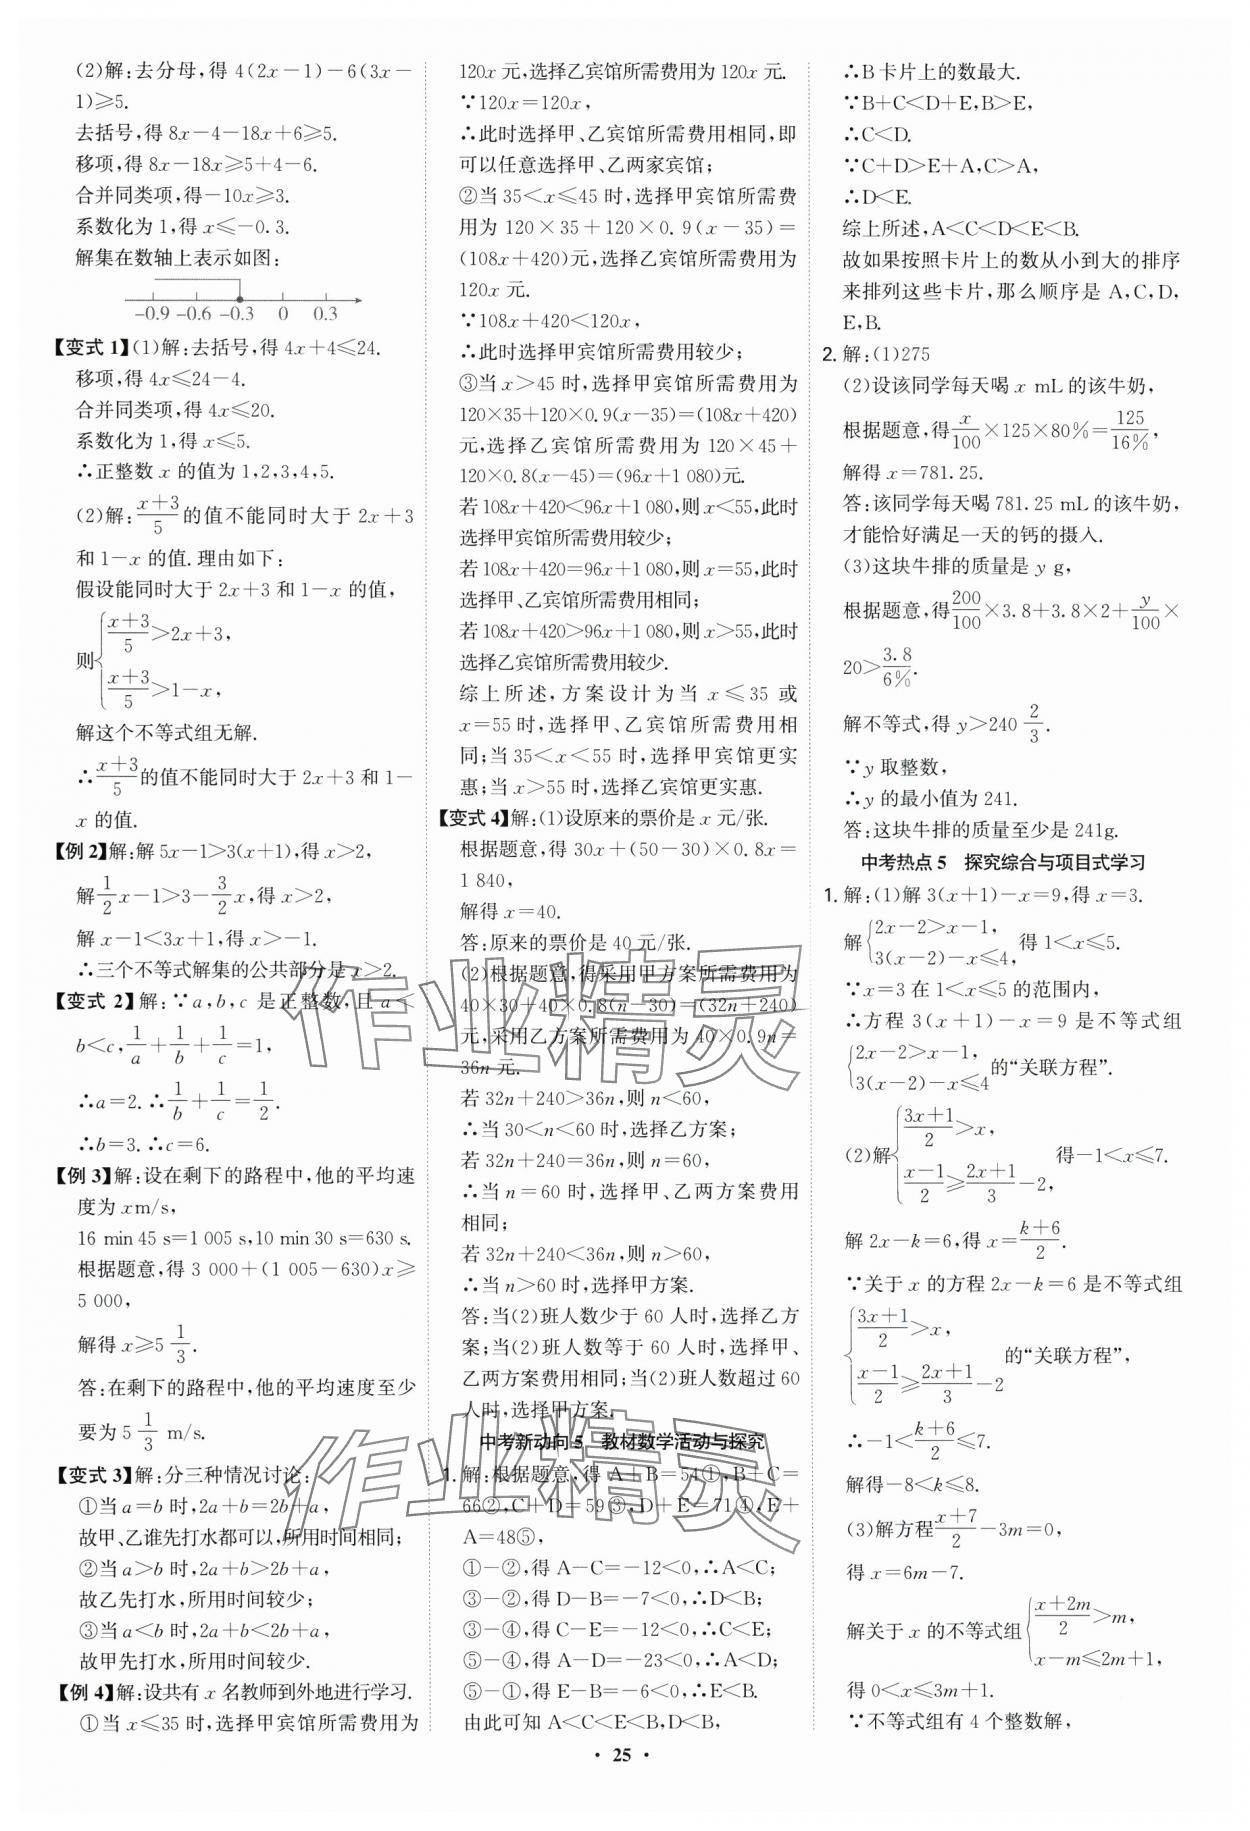 (2)解:去分母,得 4(2x-1)-6(3x-
1)≥5.
去括号,得 8x-4-18x+6≥5.
移项,得 8x-18x≥5+4-6.
合并同类项,得-10x≥3.
系数化为 1,得 x≤-0.3.
解集在数轴上表示如图:
-0.9 -0.6 -0.3 0 0.3
【变式 1】(1)解:去括号,得 4x+4≤24.
移项,得 4x≤24-4.
合并同类项,得 4x≤20.
系数化为 1,得 x≤5.
∴正整数 x 的值为 1,2,3,4,5.
(2)解:\frac{x+3}{5}的值不能同时大于 2x+3
和 1-x 的值.理由如下:
假设能同时大于 2x+3 和 1-x 的值,
则{\frac{x+3}{5}>2x+3,
\frac{x+3}{5}>1-x,
解这个不等式组无解.
∴\frac{x+3}{5}的值不能同时大于 2x+3 和 1-
x 的值.
【例 2】解:解 5x-1>3(x+1),得 x>2,
解\frac{1}{2}x-1>3-\frac{3}{2}x,得 x>2,
解 x-1<3x+1,得 x>-1.
∴三个不等式解集的公共部分是 x>2.
【变式 2】解:∵a,b,c 是正整数,且 a<
b<c,\frac{1}{a}+\frac{1}{b}+\frac{1}{c}=1,
∴a=2.∴\frac{1}{b}+\frac{1}{c}=\frac{1}{2}.
∴b=3.∴c=6.
【例 3】解:设在剩下的路程中,他的平均速
度为 x m/s,
16 min 45 s=1 005 s,10 min 30 s=630 s.
根据题意,得 3 000+(1 005-630)x≥
5 000,
解得 x≥5\frac{1}{3}.
答:在剩下的路程中,他的平均速度至少
要为 5\frac{1}{3} m/s.
【变式 3】解:分三种情况讨论:
①当 a=b 时,2a+b=2b+a,
故甲、乙谁先打水都可以,所用时间相同;
②当 a>b 时,2a+b>2b+a,
故乙先打水,所用时间较少;
③当 a<b 时,2a+b<2b+a,
故甲先打水,所用时间较少.
【例 4】解:设共有 x 名教师到外地进行学习.
①当 x≤35 时,选择甲宾馆所需费用为
120x 元,选择乙宾馆所需费用为 120x 元.
∵120x=120x,
∴此时选择甲、乙宾馆所需费用相同,即
可以任意选择甲、乙两家宾馆;
②当 35<x≤45 时,选择甲宾馆所需费
用为 120×35+120×0.9(x-35)=
(108x+420)元,选择乙宾馆所需费用为
120x 元.
∵108x+420<120x,
∴此时选择甲宾馆所需费用较少;
③当 x>45 时,选择甲宾馆所需费用为
120×35+120×0.9(x-35)=(108x+420)
元,选择乙宾馆所需费用为 120×45+
120×0.8(x-45)=(96x+1 080)元.
若 108x+420<96x+1 080,则 x<55,此时
选择甲宾馆所需费用较少;
若 108x+420=96x+1 080,则 x=55,此时
选择甲、乙宾馆所需费用相同;
若 108x+420>96x+1 080,则 x>55,此时
选择乙宾馆所需费用较少.
综上所述,方案设计为当 x≤35 或
x=55 时,选择甲、乙宾馆所需费用相
同;当 35<x<55 时,选择甲宾馆更实
惠;当 x>55 时,选择乙宾馆更实惠.
【变式 4】解:(1)设原来的票价是 x 元/张.
根据题意,得 30x+(50-30)×0.8x=
1 840,
解得 x=40.
答:原来的票价是 40 元/张.
(2)根据题意,得采用甲方案所需费用为
40×30+40×0.8(n-30)=(32n+240)
元,采用乙方案所需费用为 40×0.9n=
36n 元.
若 32n+240>36n,则 n<60,
∴当 30<n<60 时,选择乙方案;
若 32n+240=36n,则 n=60,
∴当 n=60 时,选择甲、乙两方案费用
相同;
若 32n+240<36n,则 n>60,
∴当 n>60 时,选择甲方案.
答:当(2)班人数少于 60 人时,选择乙方
案;当(2)班人数等于 60 人时,选择甲、
乙两方案费用相同;当(2)班人数超过 60
人时,选择甲方案.
中考新动向 5 教材数学活动与探究
1.解:根据题意,得 A+B=54①,B+C=
66②,C+D=59③,D+E=71④,E+
A=48⑤,
①-②,得 A-C=-12<0,∴A<C;
③-②,得 D-B=-7<0,∴D<B;
③-④,得 C-E=-12<0,∴C<E;
⑤-④,得 A-D=-23<0,∴A<D;
⑤-①,得 E-B=-6<0,∴E<B.
由此可知 A<C<E<B,D<B,
∴B 卡片上的数最大.
∵B+C<D+E,B>E,
∴C<D.
∵C+D>E+A,C>A,
∴D<E.
综上所述,A<C<D<E<B.
故如果按照卡片上的数从小到大的排序
来排列这些卡片,那么顺序是 A,C,D,
E,B.
2.解:(1)275
(2)设该同学每天喝 x mL 的该牛奶,
根据题意,得\frac{x}{100}×125×80%=\frac{125}{16%},
解得 x=781.25.
答:该同学每天喝 781.25 mL 的该牛奶,
才能恰好满足一天的钙的摄入.
(3)这块牛排的质量是 y g,
根据题意,得\frac{200}{100}×3.8+3.8×2+\frac{y}{100}×
20>\frac{3.8}{6%}.
解不等式,得 y>240\frac{2}{3}.
∵y 取整数,
∴y 的最小值为 241.
答:这块牛排的质量至少是 241g.
中考热点 5 探究综合与项目式学习
1.解:(1)解 3(x+1)-x=9,得 x=3.
解{2x-2>x-1,
3(x-2)-x≤4, 得 1<x≤5.
∵x=3 在 1<x≤5 的范围内,
∴方程 3(x+1)-x=9 是不等式组
{2x-2>x-1,
3(x-2)-x≤4 的“关联方程”.
(2)解{\frac{3x+1}{2}>x,
\frac{x-1}{2}≥\frac{2x+1}{3}-2, 得-1<x≤7.
解 2x-k=6,得 x=\frac{k+6}{2}.
∵关于 x 的方程 2x-k=6 是不等式组
{\frac{3x+1}{2}>x,
\frac{x-1}{2}≥\frac{2x+1}{3}-2 的“关联方程”,
∴-1<\frac{k+6}{2}≤7.
解得-8<k≤8.
(3)解方程\frac{x+7}{2}-3m=0,
得 x=6m-7.
解关于 x 的不等式组{\frac{x+2m}{2}>m,
x-m≤2m+1,
得 0<x≤3m+1.
∵不等式组有 4 个整数解,
• 25 •
作业精灵
作业精灵